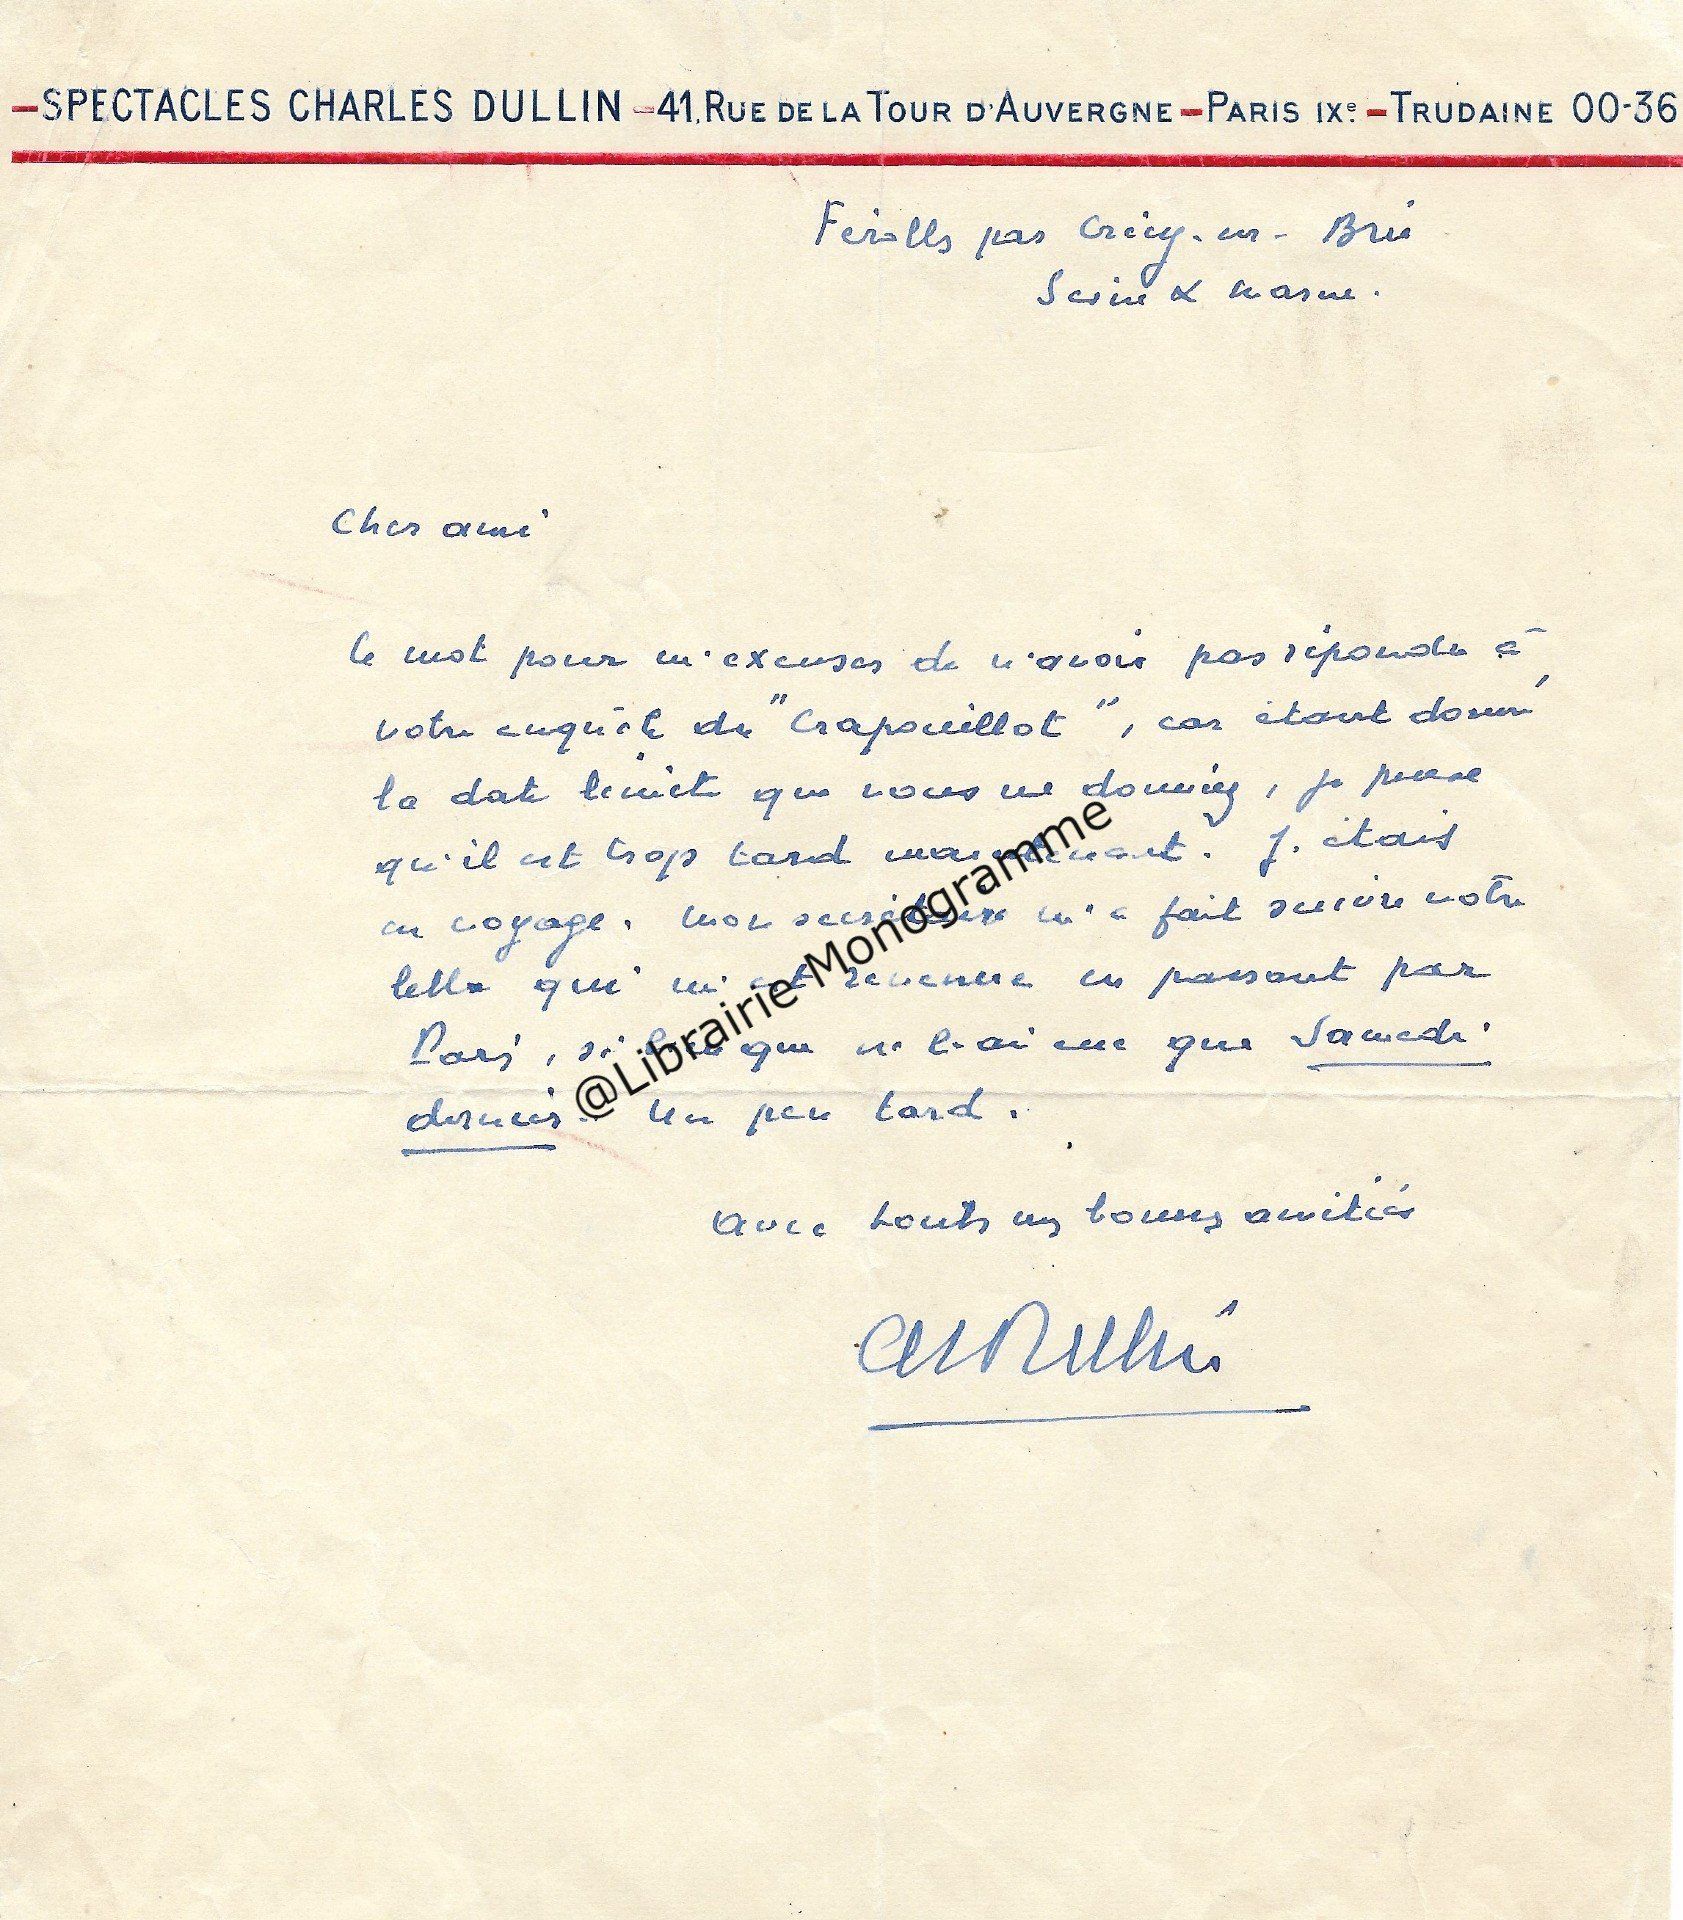 SPECTACLES CHARLES DULLIN - 41, RUE DE LA TOUR D'AUVERGNE - PARIS IXe - TRUDAINE 00-36
Férolles par Crécy-en-Brie
Seine & Marne.
Cher ami
Ce mot pour m'excuser de n'avoir pas répondu à
votre enquête du "Crapouillot", car étant donné
la date limite que vous me donniez, je pense
qu'il est trop tard maintenant. J'étais
en voyage. Mon secrétaire m'a fait suivre votre
lettre qui m'est revenue en passant par
Paris, si bien que je l'ai eue que Samedi
dernier. Un peu tard.
Avec toutes mes bonnes amitiés
Ch Dullin
@Librairie Monogramme